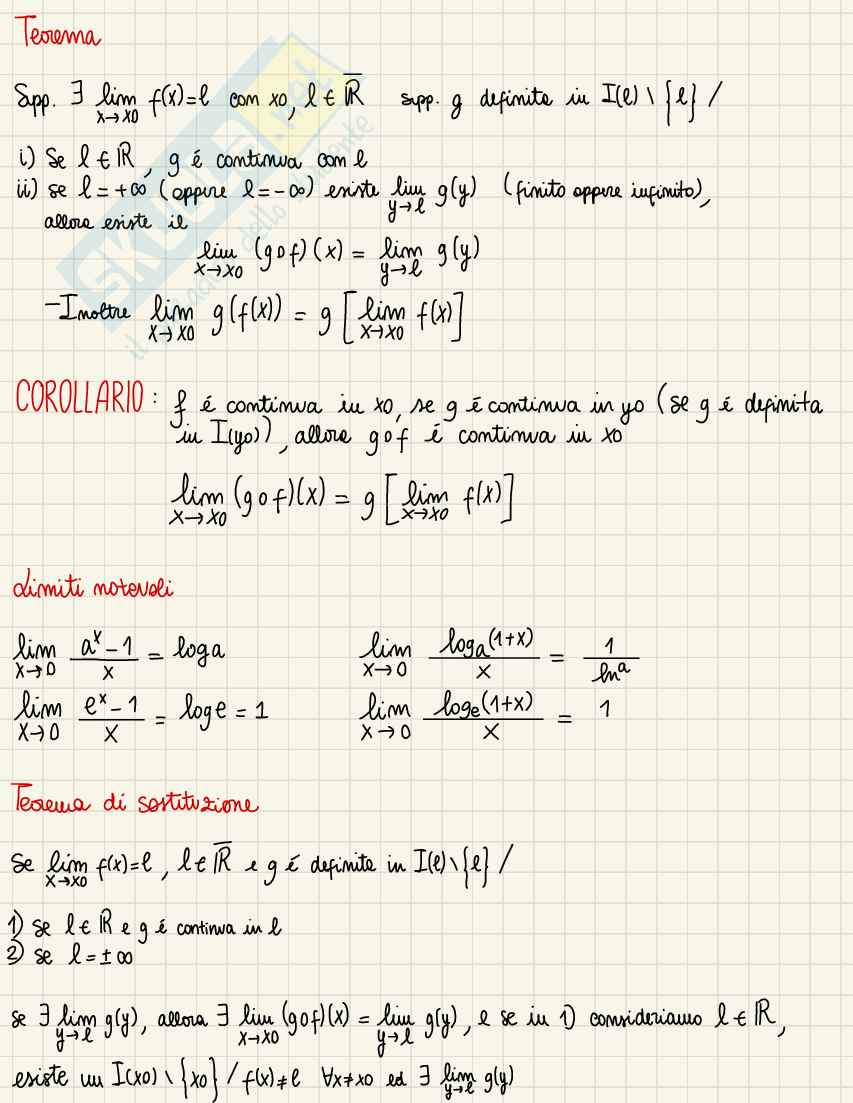 Teorema
Supp. ∃ lim x→x0 f(x)=l con x0, l ∈ R̅ supp. g definita in I(l) \ {l} /
i) Se l ∈ ℝ, g é continua con l
ii) se l = +∞ (oppure l = -∞) esiste lim y→l g(y) (finito oppure infinito),
allora esiste il
lim x→x0 (g∘f)(x) = lim y→l g(y)
-Inoltre lim x→x0 g(f(x)) = g [lim x→x0 f(x)]
COROLLARIO: f é continua in x0, se g é continua in y0 (se g é definita
in I(y0)), allora g∘f é continua in x0
lim x→x0 (g∘f)(x) = g [lim x→x0 f(x)]
Limiti notevoli
lim x→0 (a^x - 1)/x = log a lim x→0 log_a(1+x)/x = 1/ln^a
lim x→0 (e^x - 1)/x = log e = 1 lim x→0 log_e(1+x)/x = 1
Teorema di sostituzione
Se lim x→x0 f(x)=l, l ∈ R̅ e g é definita in I(l)\{l} /
1) se l ∈ ℝ e g é continua in l
2) se l = ±∞
se ∃ lim y→l g(y), allora ∃ lim x→x0 (g∘f)(x) = lim y→l g(y), e se in 1) consideriamo l ∈ ℝ,
esiste un I(x0) \ {x0} / f(x)≠l ∀x≠x0 ed ∃ lim y→l g(y)
SKUOLA.net